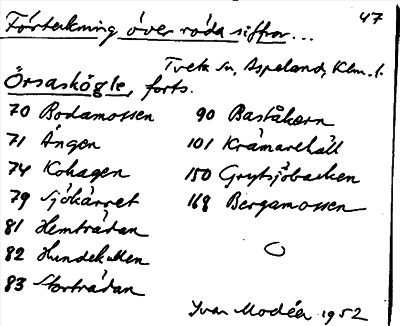 47
Förteckning över röda siffror...
Tveta sn, Aspelands, Klm. l.
Örsaskögle, forts.
70 Bodamossen
71 Ängen
74 Kohagen
79 Sjökärret
81 Hemträdan
82 Hundekullen
83 Storträdan
90 Baståkern
101 Krämarehäll
150 Grytsjöbacken
168 Bergamossen
Ivar Modéer 1952